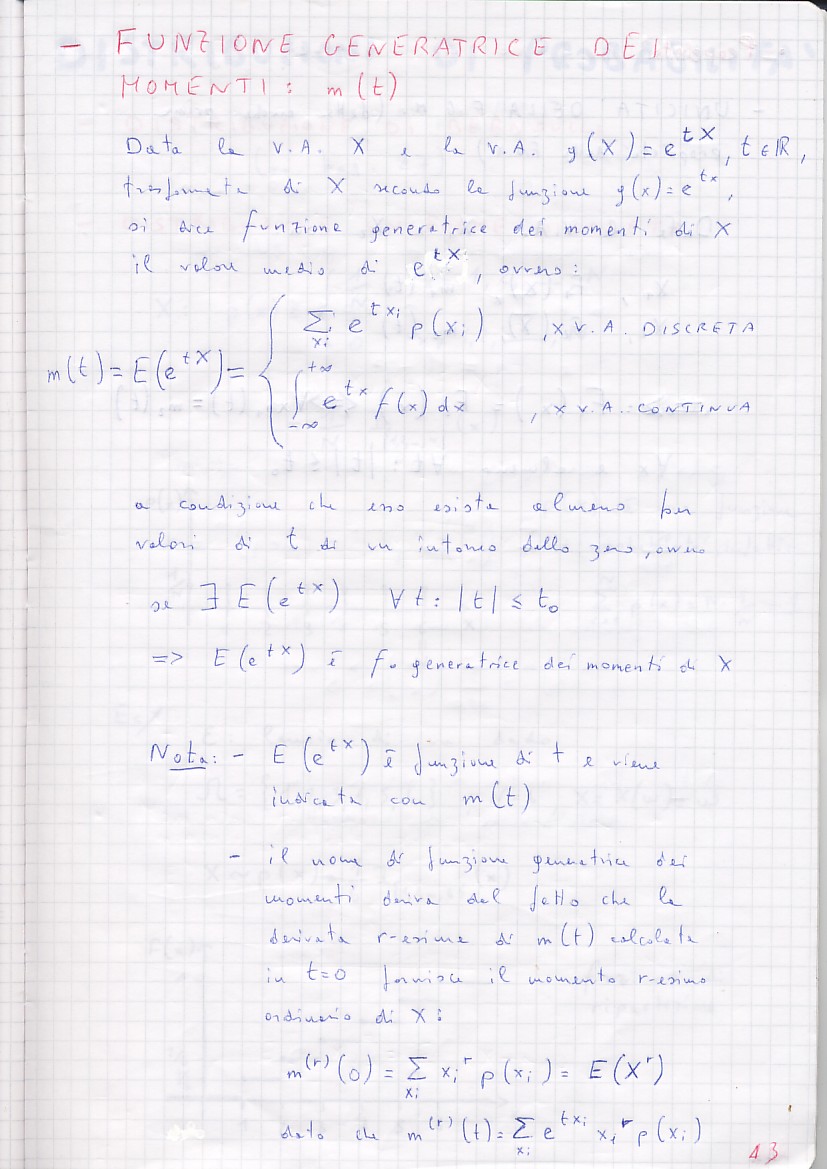 - FUNZIONE GENERATRICE DEI
MOMENTI: m(t)
Data la V.A. X e la V.A. g(X) = e^{tX}, t ∈ ℝ,
trasformata di X secondo la funzione g(x) = e^{tx},
si dice funzione generatrice dei momenti di X
il valore medio di e^{tX}, ovvero:
m(t) = E(e^{tX}) = { ∑_{xi} e^{t xi} p(xi) , X V.A. DISCRETA
∫_{-∞}^{+∞} e^{tx} f(x) dx , X V.A. CONTINUA
a condizione che esso esista almeno per
valori di t di un intorno dello zero, ovvero
se ∃ E(e^{tX}) ∀ t: |t| ≤ t₀
=> E(e^{tX}) è f. generatrice dei momenti di X
Nota: - E(e^{tX}) è funzione di t e viene
indicata con m(t)
- il nome di funzione generatrice dei
momenti deriva dal fatto che la
derivata r-esima di m(t) calcolata
in t=0 fornisce il momento r-esimo
ordinario di X:
m^{(r)}(0) = ∑_{xi} xi^r p(xi) = E(X^r)
dato che m^{(r)}(t) = ∑_{xi} e^{t xi} xi^r p(xi)
43